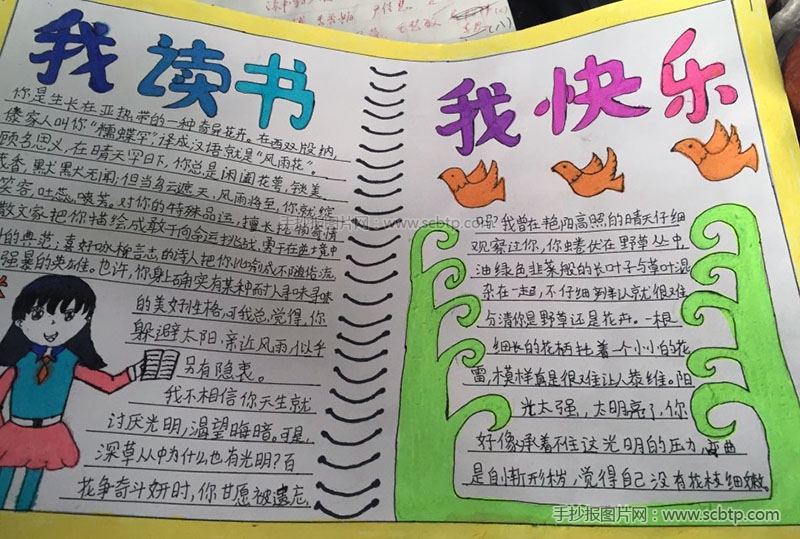 我读书
你是生长在亚热带的一种奇异花卉。在西双版纳,
傣家人叫你“糯蝶罕”译成汉语就是“风雨花”。
顾名思义,在晴天罕日下,你总是闲闺花萼,敛美
香,默默无闻;但当乌云遮天,风雨将至,你就绽
笑容吐蕊,喷芳。对你的特殊品运,擅长托物寄情
散文家把你描绘成敢于向命运挑战,勇于在逆境中
的典范;喜好咏梅言志的诗人把你比喻成不随俗流
强暴的英雄。也许,你身上确实有某种耐人寻味
的美好性格,可我总觉得,你
躲避太阳,亲近风雨,似乎
另有隐衷。
我不相信你天生就
讨厌光明,渴望晦暗。可是,
深草从中为什么也有光明?百
花争奇斗妍时,你甘愿被遗忘,
我快乐
哦?我曾在艳阳高照的晴天仔细
观察过你,你蜷伏在野草丛中
油绿色韭菜般的长叶子与草叶混
杂在一起,不仔细辨认就很难
分清你是野草还是花卉。一根
细长的花柄托着一个小小的花
蕾,模样真是很难让人恭维。阳
光太强,太明亮了,你
好像承着不住这光明的压力,弯曲
是自惭形秽,觉得自己没有花枝细嫩
手抄报图片网:www.scbtp.com
手抄报图片网:www.scbtp.com